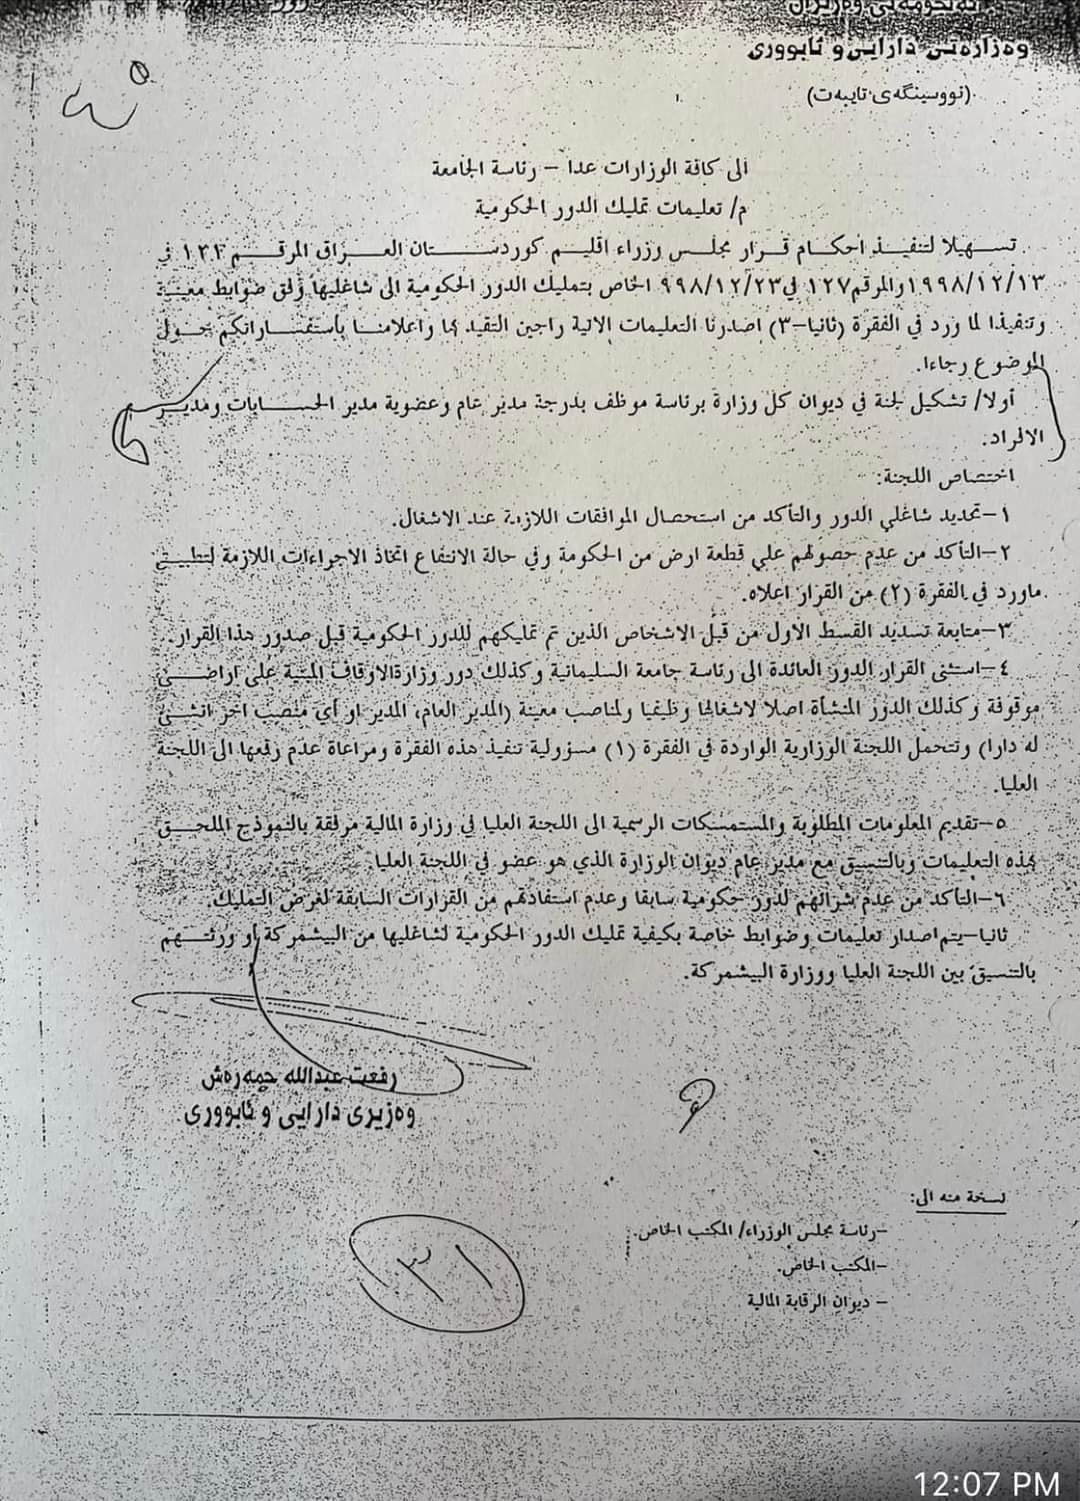 وەزارەتی دارایی و ئابووری
(نووسینگەی تایبەت)
الى كافة الوزارات عدا – رئاسة الجامعة
م/ تعليمات تمليك الدور الحكومية
تسهيلا لتنفيذ احكام قرار مجلس وزراء اقليم كوردستان العراق المرقم في
١٩٩٨/١٢/١٣ والمرقم ١٢٧ في ٩٩٨/١٢/٢٣ الخاص بتمليك الدور الحكومية الى شاغليها وفق ضوابط معينة
وتنفيذا لما ورد في الفقرة (ثانيا–٣) اصدرنا التعليمات الاتية راجين التقيد بها واعلامنا بأستفساراتكم حول
الموضوع رجاءا.
أولا/ تشكيل لجنة في ديوان كل وزارة برئاسة موظف بدرجة مدير عام وعضوية مدير الحسابات ومدير
الافراد.
اختصاص اللجنة:
١–تحديد شاغلي الدور والتأكد من استحصال الموافقات اللازمة عند الاشغال.
٢–التأكد من عدم حصولهم على قطعة ارض من الحكومة وفي حالة الانتفاع اتخاذ الاجراءات اللازمة لتطبيق
ماورد في الفقرة (٢) من القرار اعلاه.
٣–متابعة تسديد القسط الاول من قبل الاشخاص الذين تم تمليكهم للدور الحكومية قبل صدور هذا القرار.
٤–استثنى القرار الدور العائدة الى رئاسة جامعة السليمانية وكذلك دور وزارة الاوقاف المبنية على اراضي
موقوفة وكذلك الدور المنشأة اصلا لاشغالها وظيفيا ولمناصب معينة (المدير العام، المدير او أي منصب اخر انشئ
له دارا) وتتحمل اللجنة الوزارية الواردة في الفقرة (١) مسؤولية تنفيذ هذه الفقرة ومراعاة عدم رفعها الى اللجنة
العليا.
٥–تقديم المعلومات المطلوبة والمستمسكات الرسمية الى اللجنة العليا في وزارة المالية مرفقة بالنموذج الملحق
بهذه التعليمات وبالتنسيق مع مدير عام ديوان الوزارة الذي هو عضو في اللجنة العليا.
٦–التأكد من عدم شرائهم لدور حكومية سابقا وعدم استفادتهم من القرارات السابقة لغرض التمليك.
ثانيا–يتم اصدار تعليمات وضوابط خاصة بكيفية تمليك الدور الحكومية لشاغليها من البيشمركة أو ورثتهم
بالتنسيق بين اللجنة العليا ووزارة البيشمركة.
رفعت عبدالله حمەرەش
وەزیری دارایی و ئابووری
نسخة منه الى:
–رئاسة مجلس الوزراء/ المكتب الخاص.
–المكتب الخاص.
– ديوان الرقابة المالية
٣١
12:07 PM